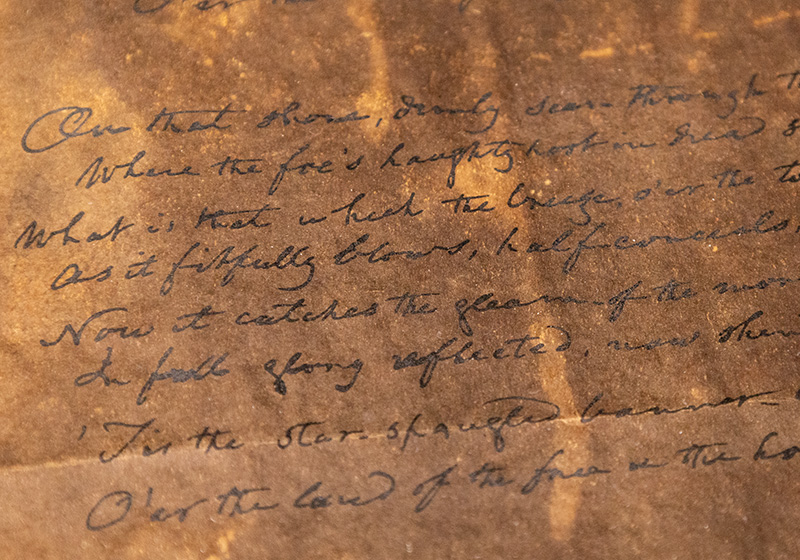 O'er the
On that shore, dimly seen through
Where the foe's haughty host in dread
What is that which the breeze, o'er the
As it fitfully blows, half conceals,
Now it catches the gleam of the
In full glory reflected, now
'Tis the star-spangled banner -
O'er the land of the free & the